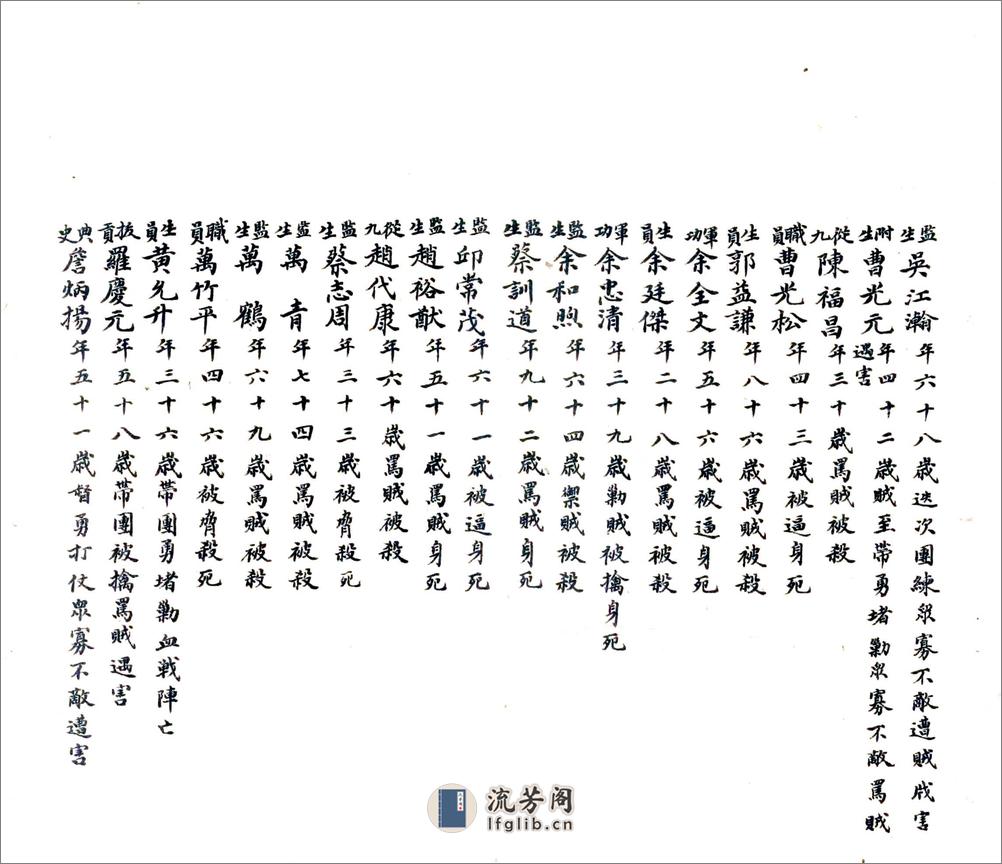 監生吳江瀚年六十八歲迭次團練眾寡不敵遭賊戕害
附生曹光元年四十二歲賊至帶勇堵勦眾寡不敵罵賊遇害
從九陳福昌年三十歲罵賊被殺
職員曹光松年四十三歲被逼身死
生員郭益謙年八十六歲罵賊被殺
軍功余全文年五十六歲被逼身死
生員余廷傑年二十八歲罵賊被殺
軍功余忠清年三十九歲勦賊被擒身死
監生余和煦年六十四歲禦賊被殺
監生蔡訓道年九十二歲罵賊身死
監生邱常茂年六十一歲被逼身死
監生趙裕猷年五十一歲罵賊身死
從九趙代康年六十歲罵賊被殺
監生蔡志周年三十三歲被脅殺死
監生萬青年七十四歲罵賊被殺
監生萬鶴年六十九歲罵賊被殺
職員萬竹平年四十六歲被脅殺死
生員黃允升年三十六歲帶團勇堵勦血戰陣亡
拔貢羅慶元年五十八歲帶團被擒罵賊遇害
典史詹炳揚年五十一歲督勇打仗眾寡不敵遭害
流芳阁
lfglib.cn